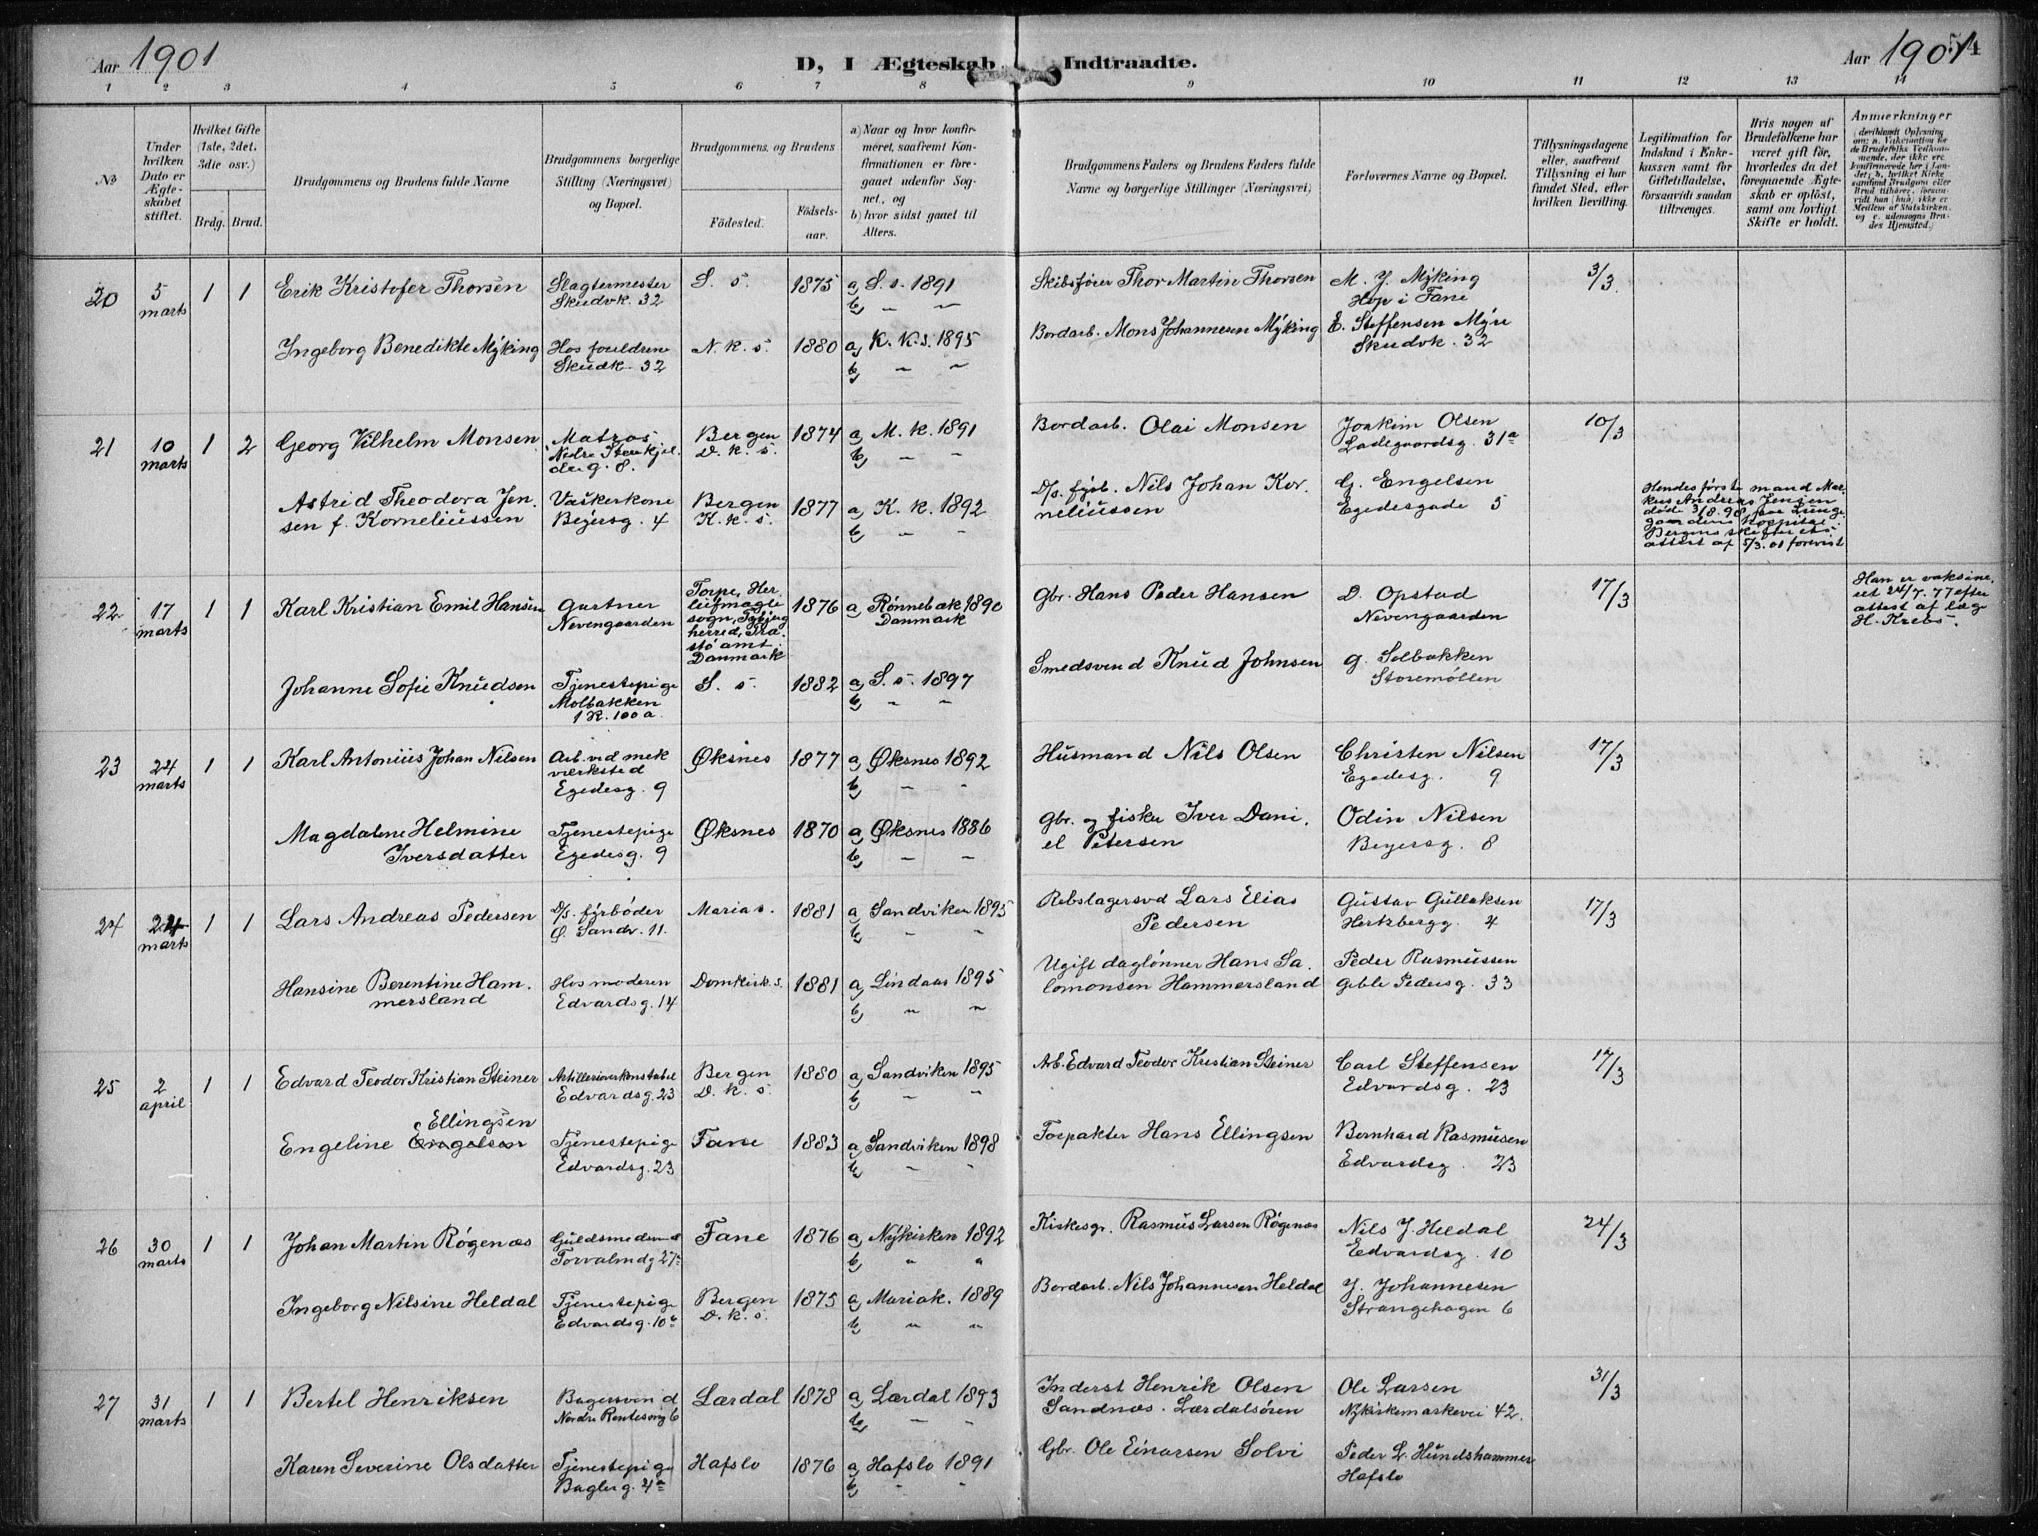 Aar 1901
D, I Ægteskab Indtraadte.
Aar 1901
54
1 2 3 4 5 6 7 8 9 10 11 12 13 14
No
Under hvilken Dato er Ægteskabet stiftet.
Hvilket Gifte (1ste, 2det. 3die osv.)
Brdg. Brud.
Brudgommens og Brudens fulde Navne
Brudgommens borgerlige Stilling (Næringsvei) og Bopæl.
Brudgommens og Brudens
Födested.
Födsels-aar.
a) Naar og hvor konfirmeret, saafremt Konfirmationen er foregaaet udenfor Sognet, og
b) hvor sidst gaaet til Alters.
Brudgommens Faders og Brudens Faders fulde Navne og borgerlige Stillinger (Næringsvei)
Forlovernes Navne og Bopæl.
Tillysningsdagene eller, saafremt Tillysning ei har fundet Sted, efter hvilken Bevilling.
Legitimation for Indskud i Enkekassen samt for Giftetilladelse, forsaavidt saadan tiltrænges.
Hvis nogen af Brudefolkene har været gift för, hvorledes da det foregaaende Ægteskab er oplöst, samt om lovligt Skifte er holdt.
Anmærkninger
(deriblandt Oplysning om: a. Vaksination for de Brudefolks Vedkommende, der ikke ere konfirmerede her i Landet; b. hvilket Kirkesamfund Brudgom eller Brud tilhører, forsaavidt han (hun) ikke er Medlem af Statskirken, og c. udensogns Brudes Hjemsted.)
20 5 marts 1 1 Erik Kristofer Thorsen Slagtermester Skudvk. 32 S. s. 1875 a) S. s. 1891 b) " " Skibsfører Thor Martin Thorsen M. J. Mÿking Hop i Fane 3/3
Ingeborg Benedikte Mÿking Hos forældrene Skudk. 32 N. k. s. 1880 a) K. K. s. 1895 b) " " Bordarb. Mons Johannesen Mÿking E. Steffensen Mÿre Skudvk. 32
21 10 marts 1 2 Georg Vilhelm Monsen Matros Nedre Stenkjelderg. 8. Bergen D. k. s. 1874 a) M. k. 1891 b) " " Bordarb. Olai Monsen Joakim Olsen Ladegaardsg. 31a 10/3
Astrid Theodora Jensen f. Korneliussen Vaskerkone Beyersg. 4 Bergen K. k. s. 1877 a) K. k. 1892 b) " " D/s. fÿrb. Nils Johan Korneliussen G. Engelsen Egedesgade 5
Hendes første mand Markus Andreas Jensen døde 3/8.98 paa Lungegaardens hospital. Bergens skifterets attest af 5/3.01 forevist
22 17 marts 1 1 Karl Kristian Emil Hansen Gartner Nevengaarden Torpe, Herlufmagle sogn, Tybjerg herred, Præstø amt. Danmark 1876 a) Rønnebæk 1890 Danmark Gbr. Hans Peder Hansen D. Opstad Nevengaarden 17/3
Han er vaksineret 24/7.77 efter attest af læge H. Krebs.
Johanne Sofie Knudsen Tjenestepige Molbakken 1 R. 100 a. S. s. 1882 a) S. s. 1897 b) " " Smedsvend Knud Johnsen G. Solbakken Storemøllen
23 24 marts 1 1 Karl Antonius Johan Nilsen Arb. ved mek værksted Egedesg. 9 Øksnes 1877 a) Øksnes 1892 b) " " Husmand Nils Olsen Christen Nilsen Egedesg. 9 17/3
Magdalene Helmine Iversdatter Tjenestepige Egedesg. 9 Øksnes 1870 a) Øksnes 1886 b) " " Gbr. og fisker Iver Daniel Petersen Odin Nilsen Beyersg. 8
24 24 marts 1 1 Lars Andreas Pedersen D/s. fÿrbøder Ø. Sandv. 11. Marias. 1881 a) Sandviken 1895 b) " " Rebslagersvd Lars Elias Pedersen Gustav Gullaksen Hertzbergg. 4 17/3
Hansine Berentine Hammersland Hos moderen Edvardsg. 14 Domkirk. s. 1881 a) Lindaas 1895 b) " " Ugift daglønner Hans Salomonsen Hammersland Peder Rasmussen Geble Pedersg. 33
25 2 april 1 1 Edvard Teodor Kristian Steiner Artillerioverkonstabel Edvardsg. 23 Bergen D. k. s. 1880 a) Sandviken 1895 b) " " Arb. Edvard Teodor Kristian Steiner Carl Steffensen Edvardsg. 23 17/3
Engeline Engelsen Ellingsen Tjenestepige Edvardsg. 23 Fane 1883 a) Sandviken 1898 b) " " Forpakter Hans Ellingsen Bernhard Rasmusen Edvardsg. 23
26 30 marts 1 1 Johan Martin Røgenæs Guldsmedsvend Torvalmdg 27a Fane 1876 a) Nÿkirken 1892 b) " " Kirkesgr. Rasmus Larsen Røgenæs Nils J. Heldal Edvardsg. 10 24/3
Ingeborg Nilsine Heldal Tjenestepige Edvardsg. 10a Bergen D. k. s. 1875 a) Mariak. 1889 b) " " Bordarb. Nils Johannesen Heldal J. Johannesen Strangehagen 6
27 31 marts 1 1 Bertel Henriksen Bagersvend Nordre 6 Lærdal 1878 a) Lærdal 1893 b) " " Inderst Henrik Olsen Sandnæs. Lærdalsören Ole Larsen Nykirkemarkevei 42. 31/3
Karen Severine Olsdatter Tjenestepige Baglerg. 4a Hafslo 1876 a) Hafslo 1891 b) " " Gbr. Ole Einarsen Solvi Peder L. Hundshammer Hafslo